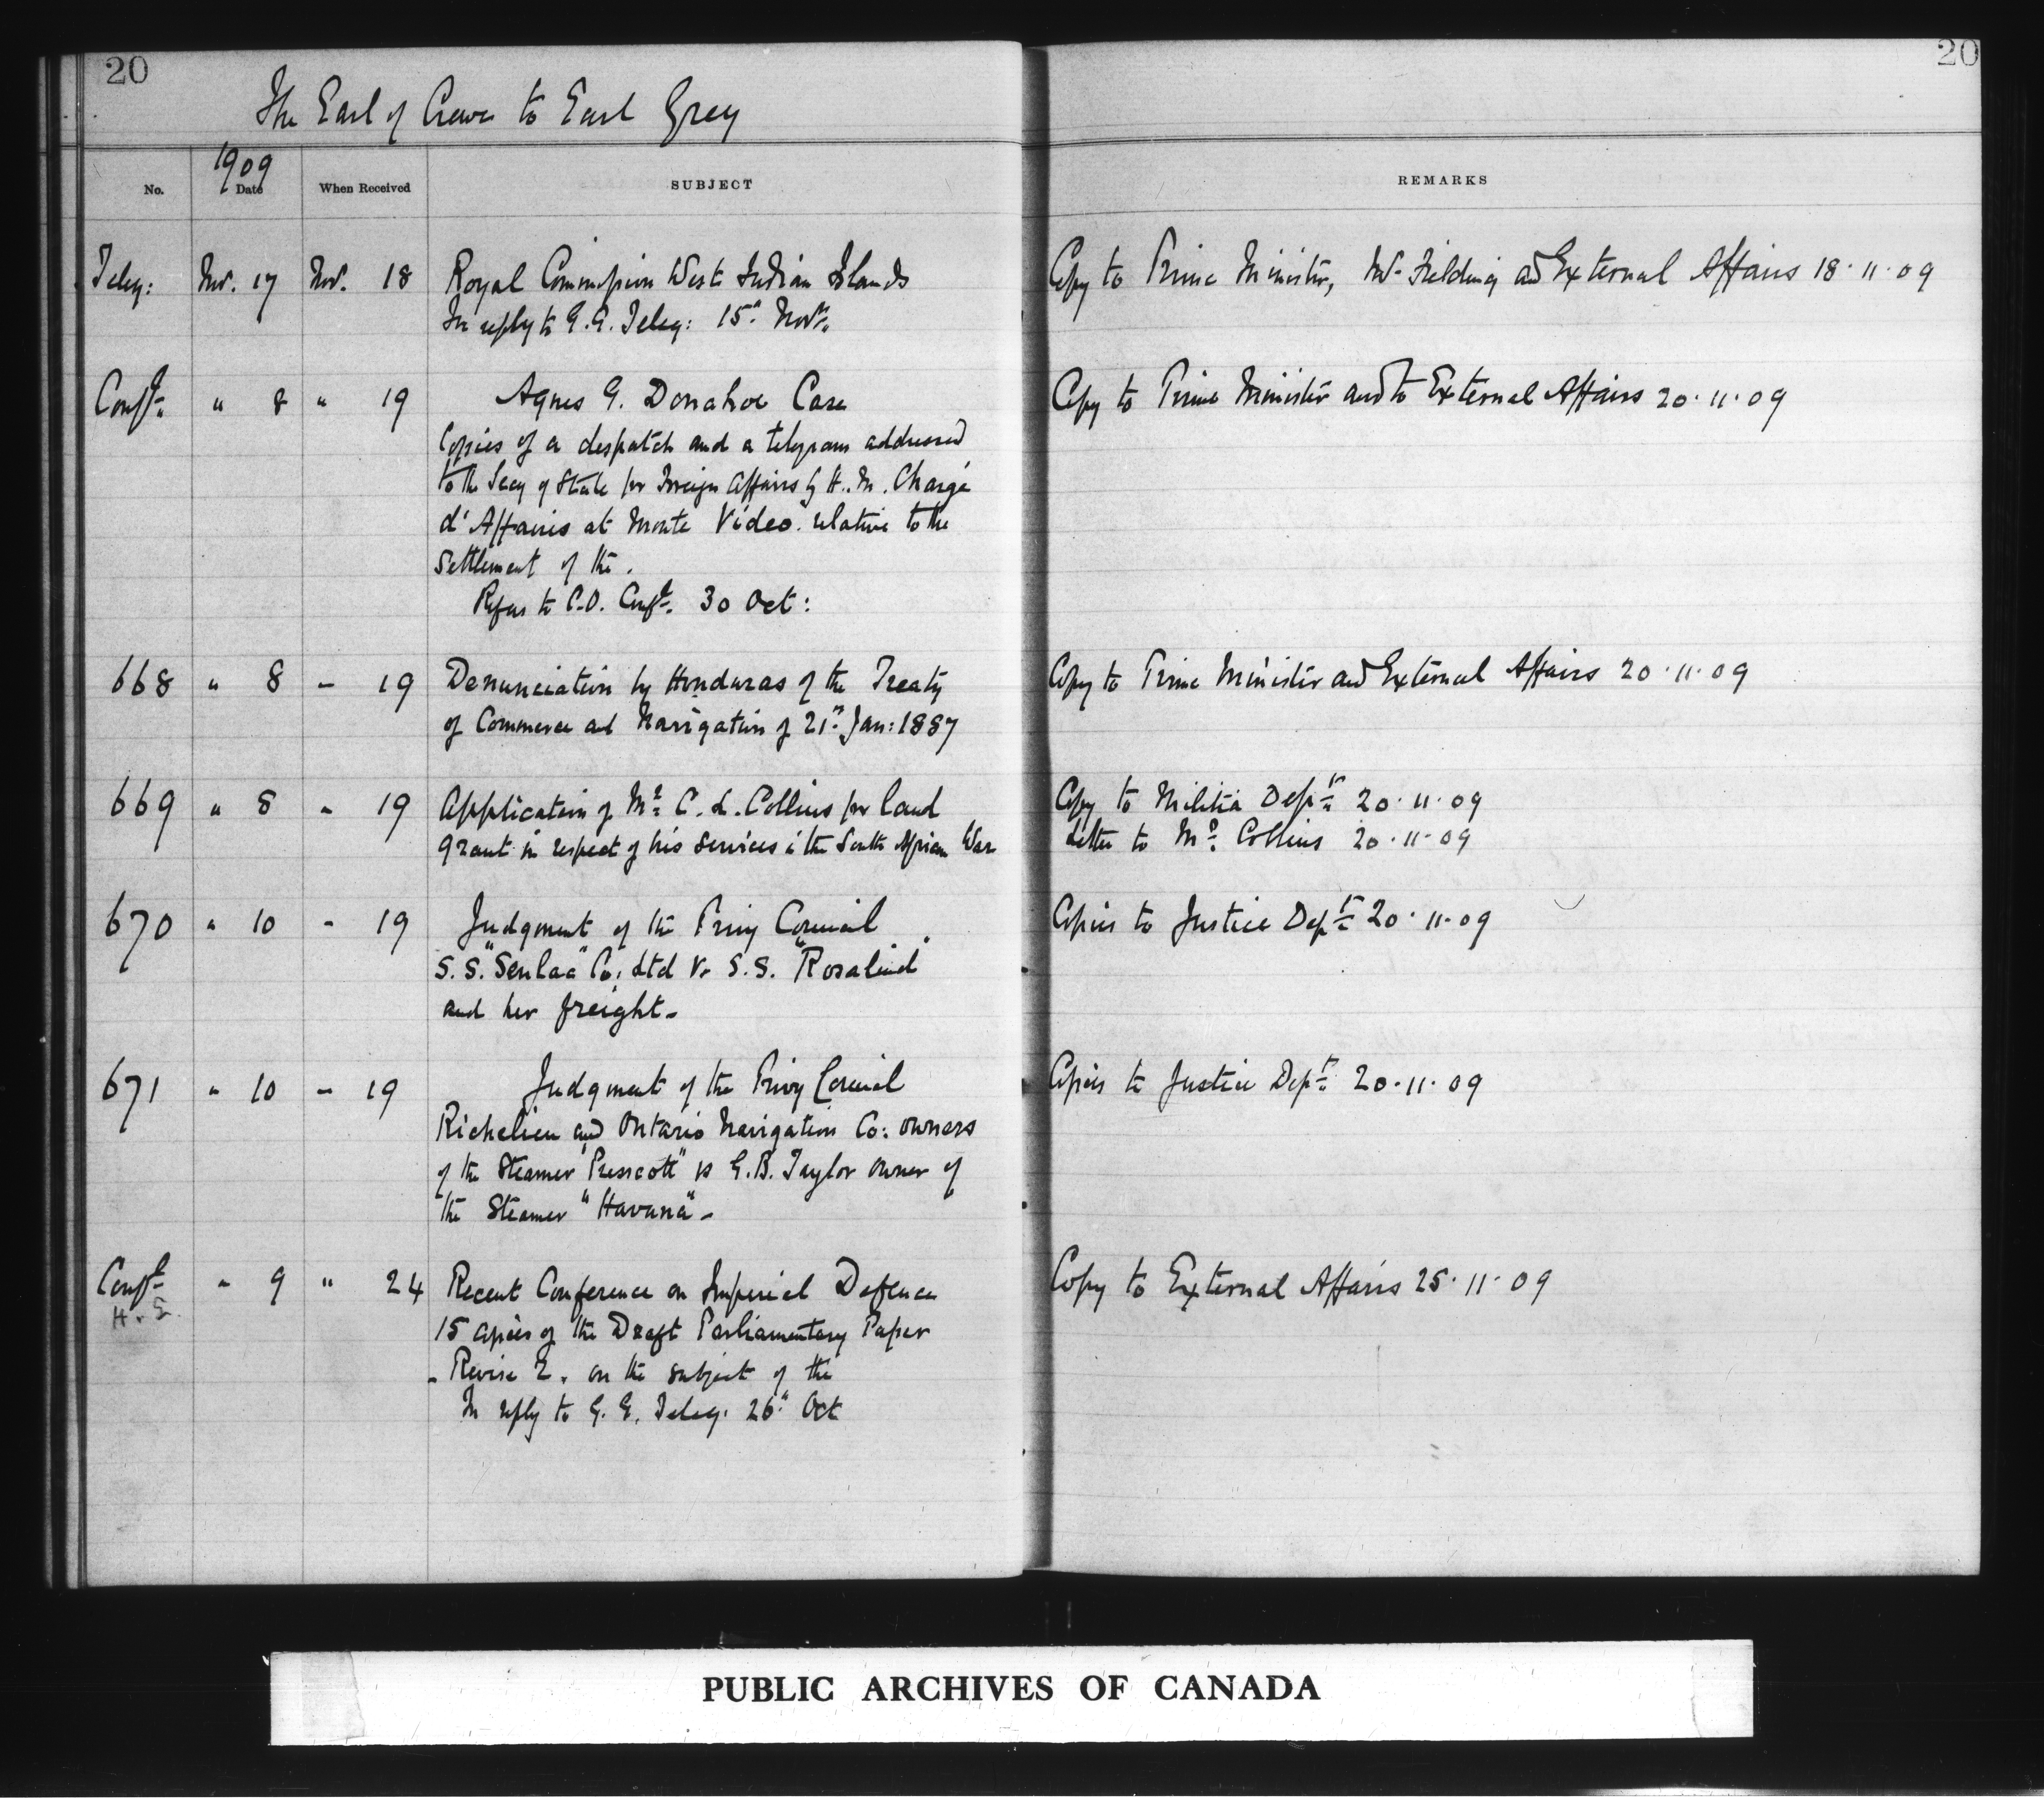 20
20
The Earl of Crewe to Earl Grey
1909
No. Date When Received SUBJECT REMARKS
Teleg: Nov. 17 Nov. 18 Royal Commission West Indian Islands Copy to Prime Minister, Mr Fielding and External Affairs 18.11.09
In reply to G.G. Teleg: 15th Novr.
Confl. " 8 " 19 Agnes G. Donahoe Case Copy to Prime Minister and to External Affairs 20.11.09
Copies of a despatch and a telegram addressed
to the Secy of State for Foreign Affairs by H.M. Chargé
d'Affaires at Monte Video relative to the
settlement of the.
Refers to C.O. Confl. 30 Oct:
668 " 8 " 19 Denunciation by Honduras of the Treaty Copy to Prime Minister and External Affairs 20.11.09
of Commerce and Navigation of 21st Jan: 1887
669 " 8 " 19 Application of Mr C. L. Collins for land Copy to Militia Dept 20.11.09
grant in respect of his services in the South African War Letter to Mr Collins 20.11.09
670 " 10 " 19 Judgment of the Privy Council Copies to Justice Dept 20.11.09
S.S. "Senlac" Co: Ltd v. S.S. "Rosalind"
and her freight.
671 " 10 " 19 Judgment of the Privy Council Copies to Justice Dept 20.11.09
Richelieu and Ontario Navigation Co: owners
of the Steamer "Prescott" vs G.B. Taylor owner of
the Steamer "Havana".
Confl " 9 " 24 Recent Conference on Imperial Defence Copy to External Affairs 25.11.09
15 copies of the Draft Parliamentary Paper
- Revise 2. on the subject of the
In reply to G.G. Teleg. 26th Oct
PUBLIC ARCHIVES OF CANADA